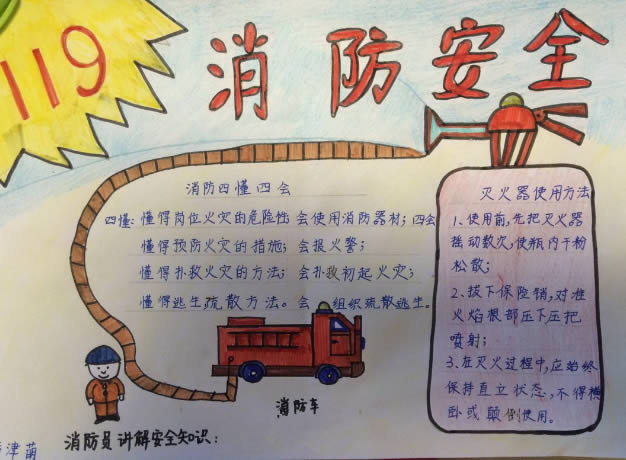 119
消防安全
消防四懂四会
四懂：懂得岗位火灾的危险性 会使用消防器材；四会
懂得预防火灾的措施；会报火警；
懂得扑救火灾的方法；会扑救初起火灾；
懂得逃生疏散方法。会 组织疏散逃生。
灭火器使用方法
1、使用前，先把灭火器
摇动数次，使瓶内干粉
松散；
2、拔下保险销，对准
火焰根部压下压把
喷射；
3、在灭火过程中，应始终
保持直立状态，不得横
卧或颠倒使用。
消防车
消防员讲解安全知识：
津萌